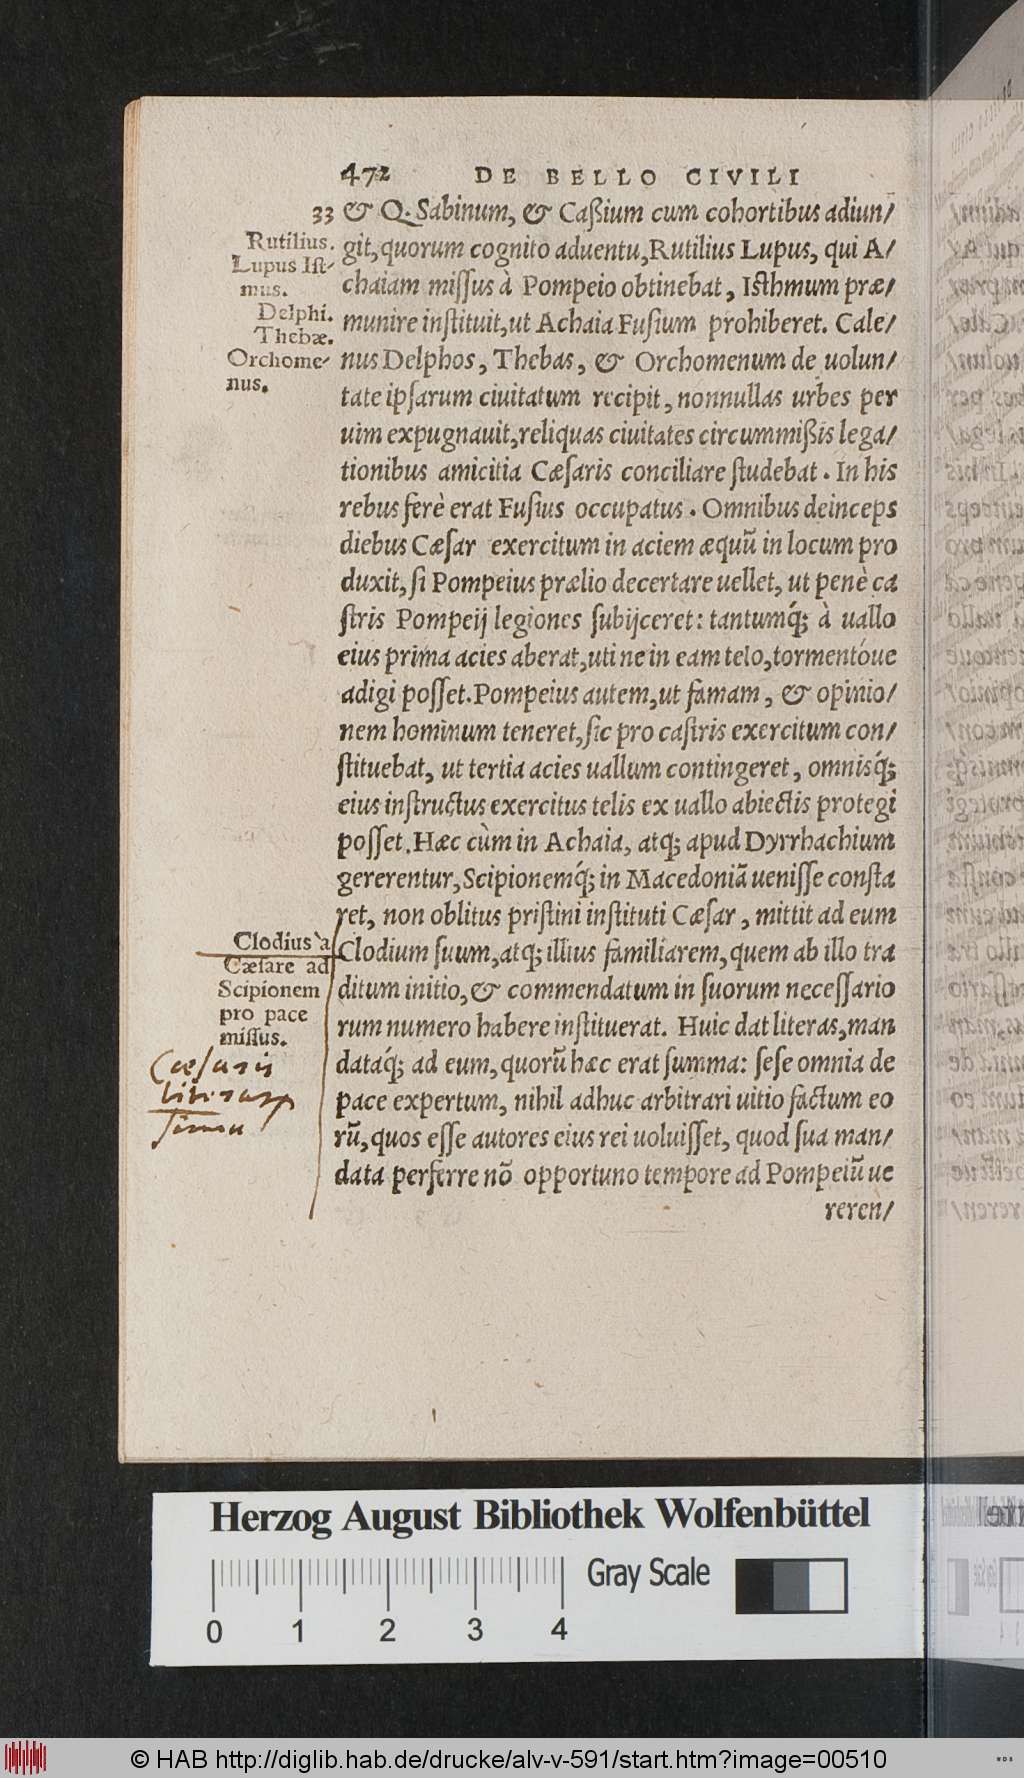 472 DE BELLO CIVILI
33 & Q. Sabinum, & Caßium cum cohortibus adiun/
Rutilius.
Lupus Ist-
mus.
Delphi.
Thebæ.
Orchome-
nus.
git, quorum cognito aduentu, Rutilius Lupus, qui A/
chaiam missus à Pompeio obtinebat, Isthmum præ/
munire instituit, ut Achaia Fusium prohiberet. Cale/
nus Delphos, Thebas, & Orchomenum de uolun/
tate ipsarum ciuitatum recipit, nonnullas urbes per
uim expugnauit, reliquas ciuitates circummißis lega/
tionibus amicitia Cæsaris conciliare studebat. In his
rebus ferè erat Fusius occupatus. Omnibus deinceps
diebus Cæsar exercitum in aciem æquū in locum pro
duxit, si Pompeius prælio decertare uellet, ut penè ca
stris Pompeij legiones subijceret: tantumq́; à uallo
eius prima acies aberat, uti ne in eam telo, tormentóue
adigi posset. Pompeius autem, ut famam, & opinio/
nem hominum teneret, sic pro castris exercitum con/
stituebat, ut tertia acies uallum contingeret, omnisq́;
eius instructus exercitus telis ex uallo abiectis protegi
posset. Hæc cùm in Achaia, atq; apud Dyrrhachium
gererentur, Scipionemq́; in Macedoniā uenisse consta
ret, non oblitus pristini instituti Cæsar, mittit ad eum
Clodius à
Cæsare ad
Scipionem
pro pace
missus.
Clodium suum, atq; illius familiarem, quem ab illo tra
ditum initio, & commendatum in suorum necessario
rum numero habere instituerat. Huic dat literas, man
dataq́; ad eum, quorū hæc erat summa: sese omnia de
pace expertum, nihil adhuc arbitrari uitio factum eo
rū, quos esse autores eius rei uoluisset, quod sua man/
data perferre nō opportuno tempore ad Pompeiū ue
reren/
Cæsaris
Herzog August Bibliothek Wolfenbüttel
0 1 2 3 4
Gray Scale
© HAB http://diglib.hab.de/drucke/alv-v-591/start.htm?image=00510